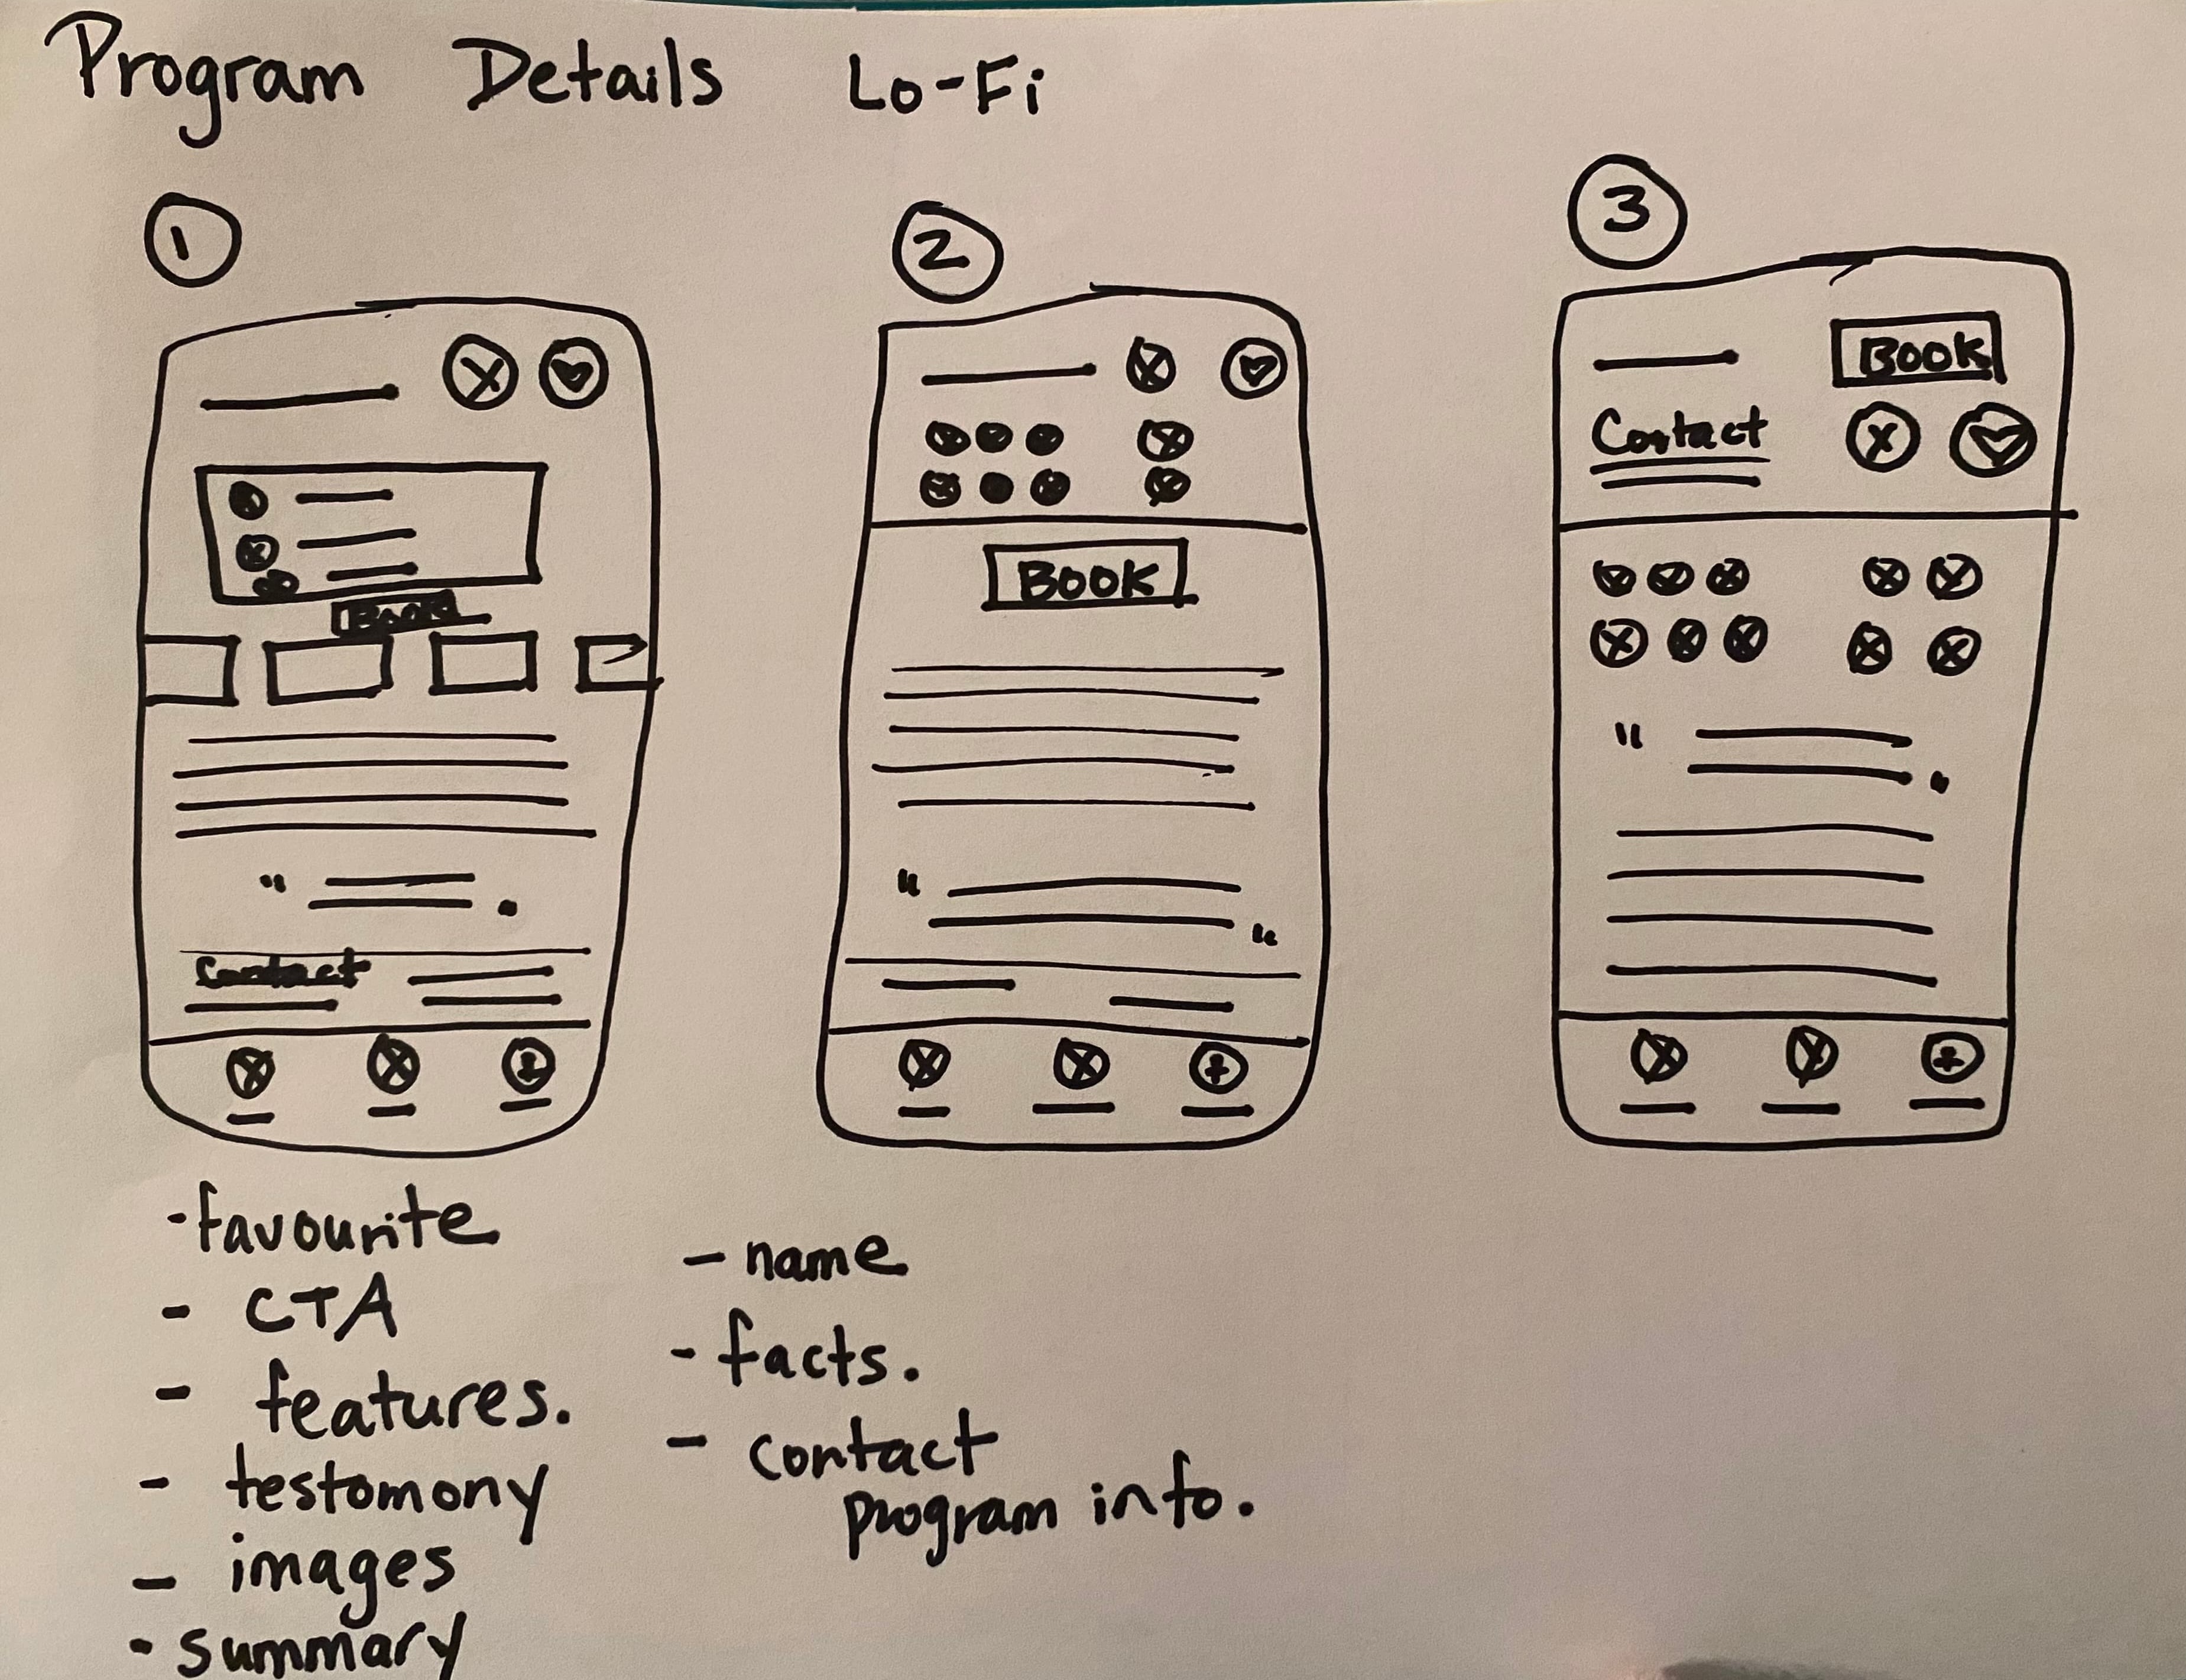 Program Details Lo-Fi
1
2
3
Book
Contact
BOOK
BOOK
Contact
-favourite
- CTA
- features.
- testomony
- images
- summary
- name
- facts.
- contact
program info.